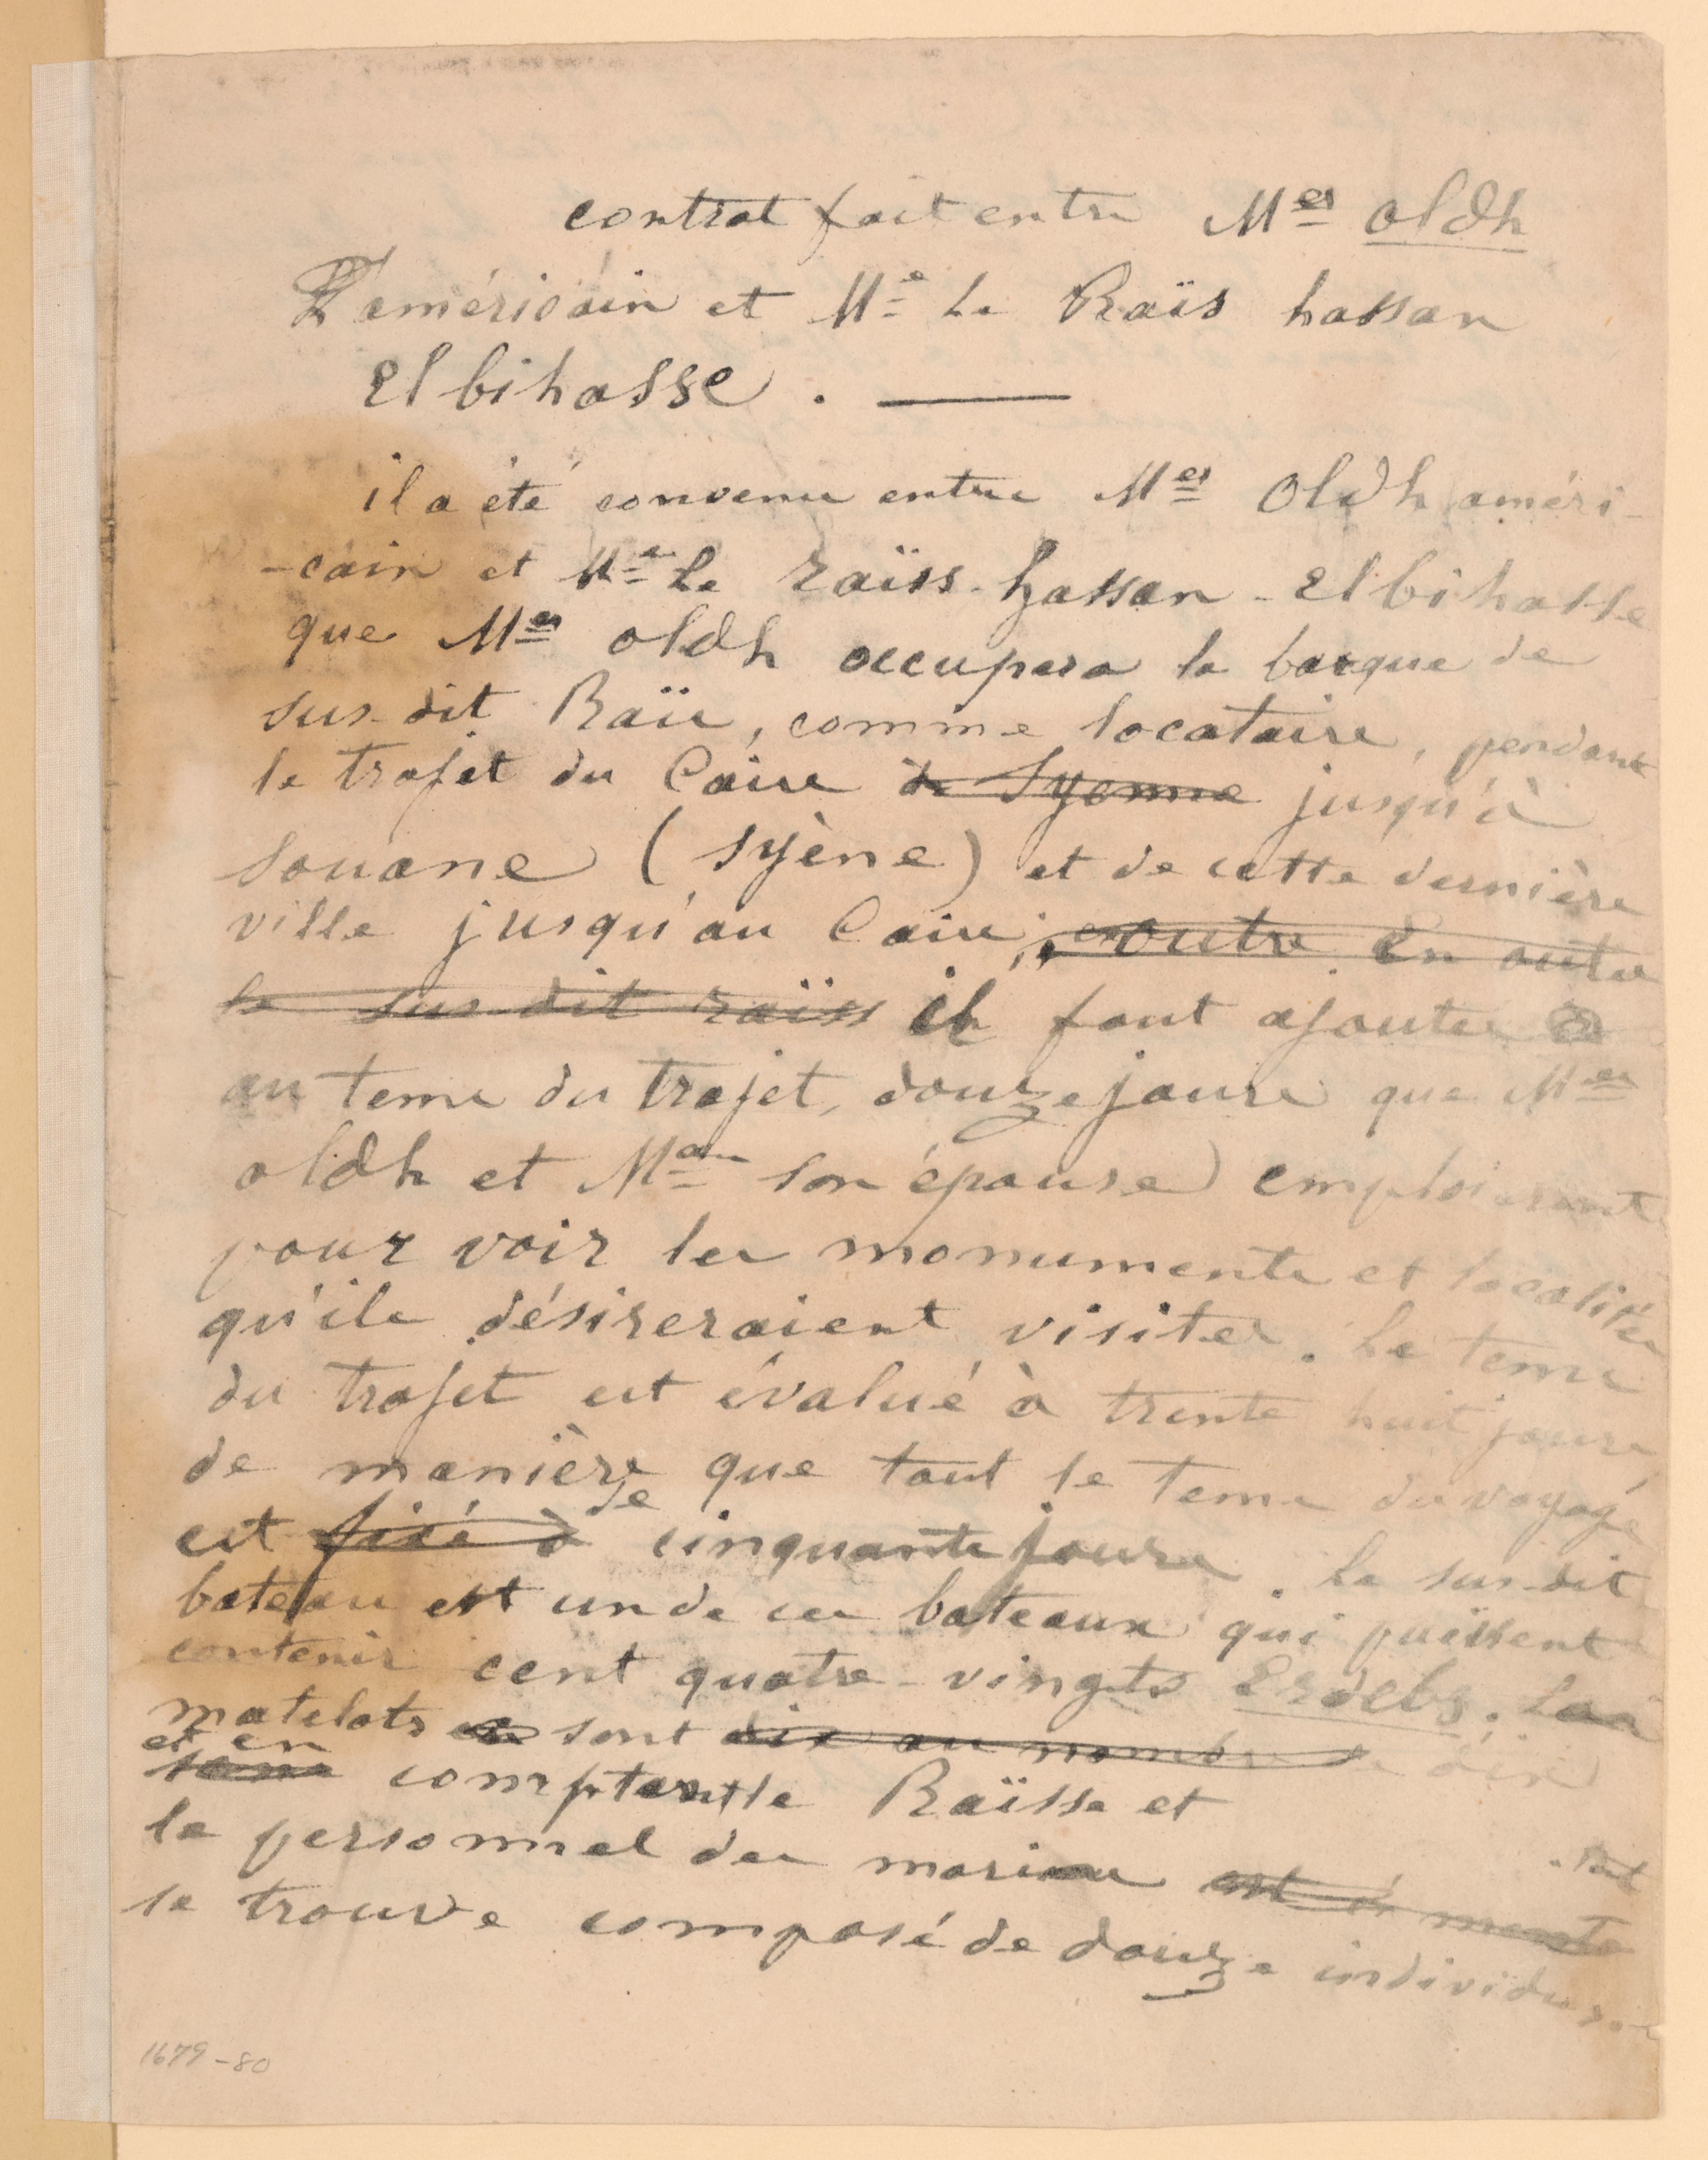 contrat fait entre Mes oldh
L'américain et Me Le Raïs hassan
El bihasse . —
il a été convenu entre Mes Oldh améri-
-cain et Me Le raïss-hassan-El bihasse
que Mes oldh occupera la barque de
sus-dit Raïs, comme locataire, pendant
le trajet du Caire de Syenne jusqu'à
Souane (syène) et de cette dernière
ville jusqu'au Caire; en outre En outre
le sus-dit raïss il faut ajouter
au tems du trajet, douze jours que Mes
oldh et Me son épouse emploieront
pour voir les monuments et localités
qu'ils désireraient visiter. Le tems
du trajet est évalué à trente huit jours
de manière que tout le tems du voyage
est fixé à de cinquante jours. Le sus-dit
bateau est un de ces bateaux qui puissent
contenir cent quatre-vingts Erdebs. Les
matelots sont dix au nombre de dix
et en
sans comptant le Raïsse et
le personnel des marins est à monté
tout
se trouve composé de douze individus
1679-80